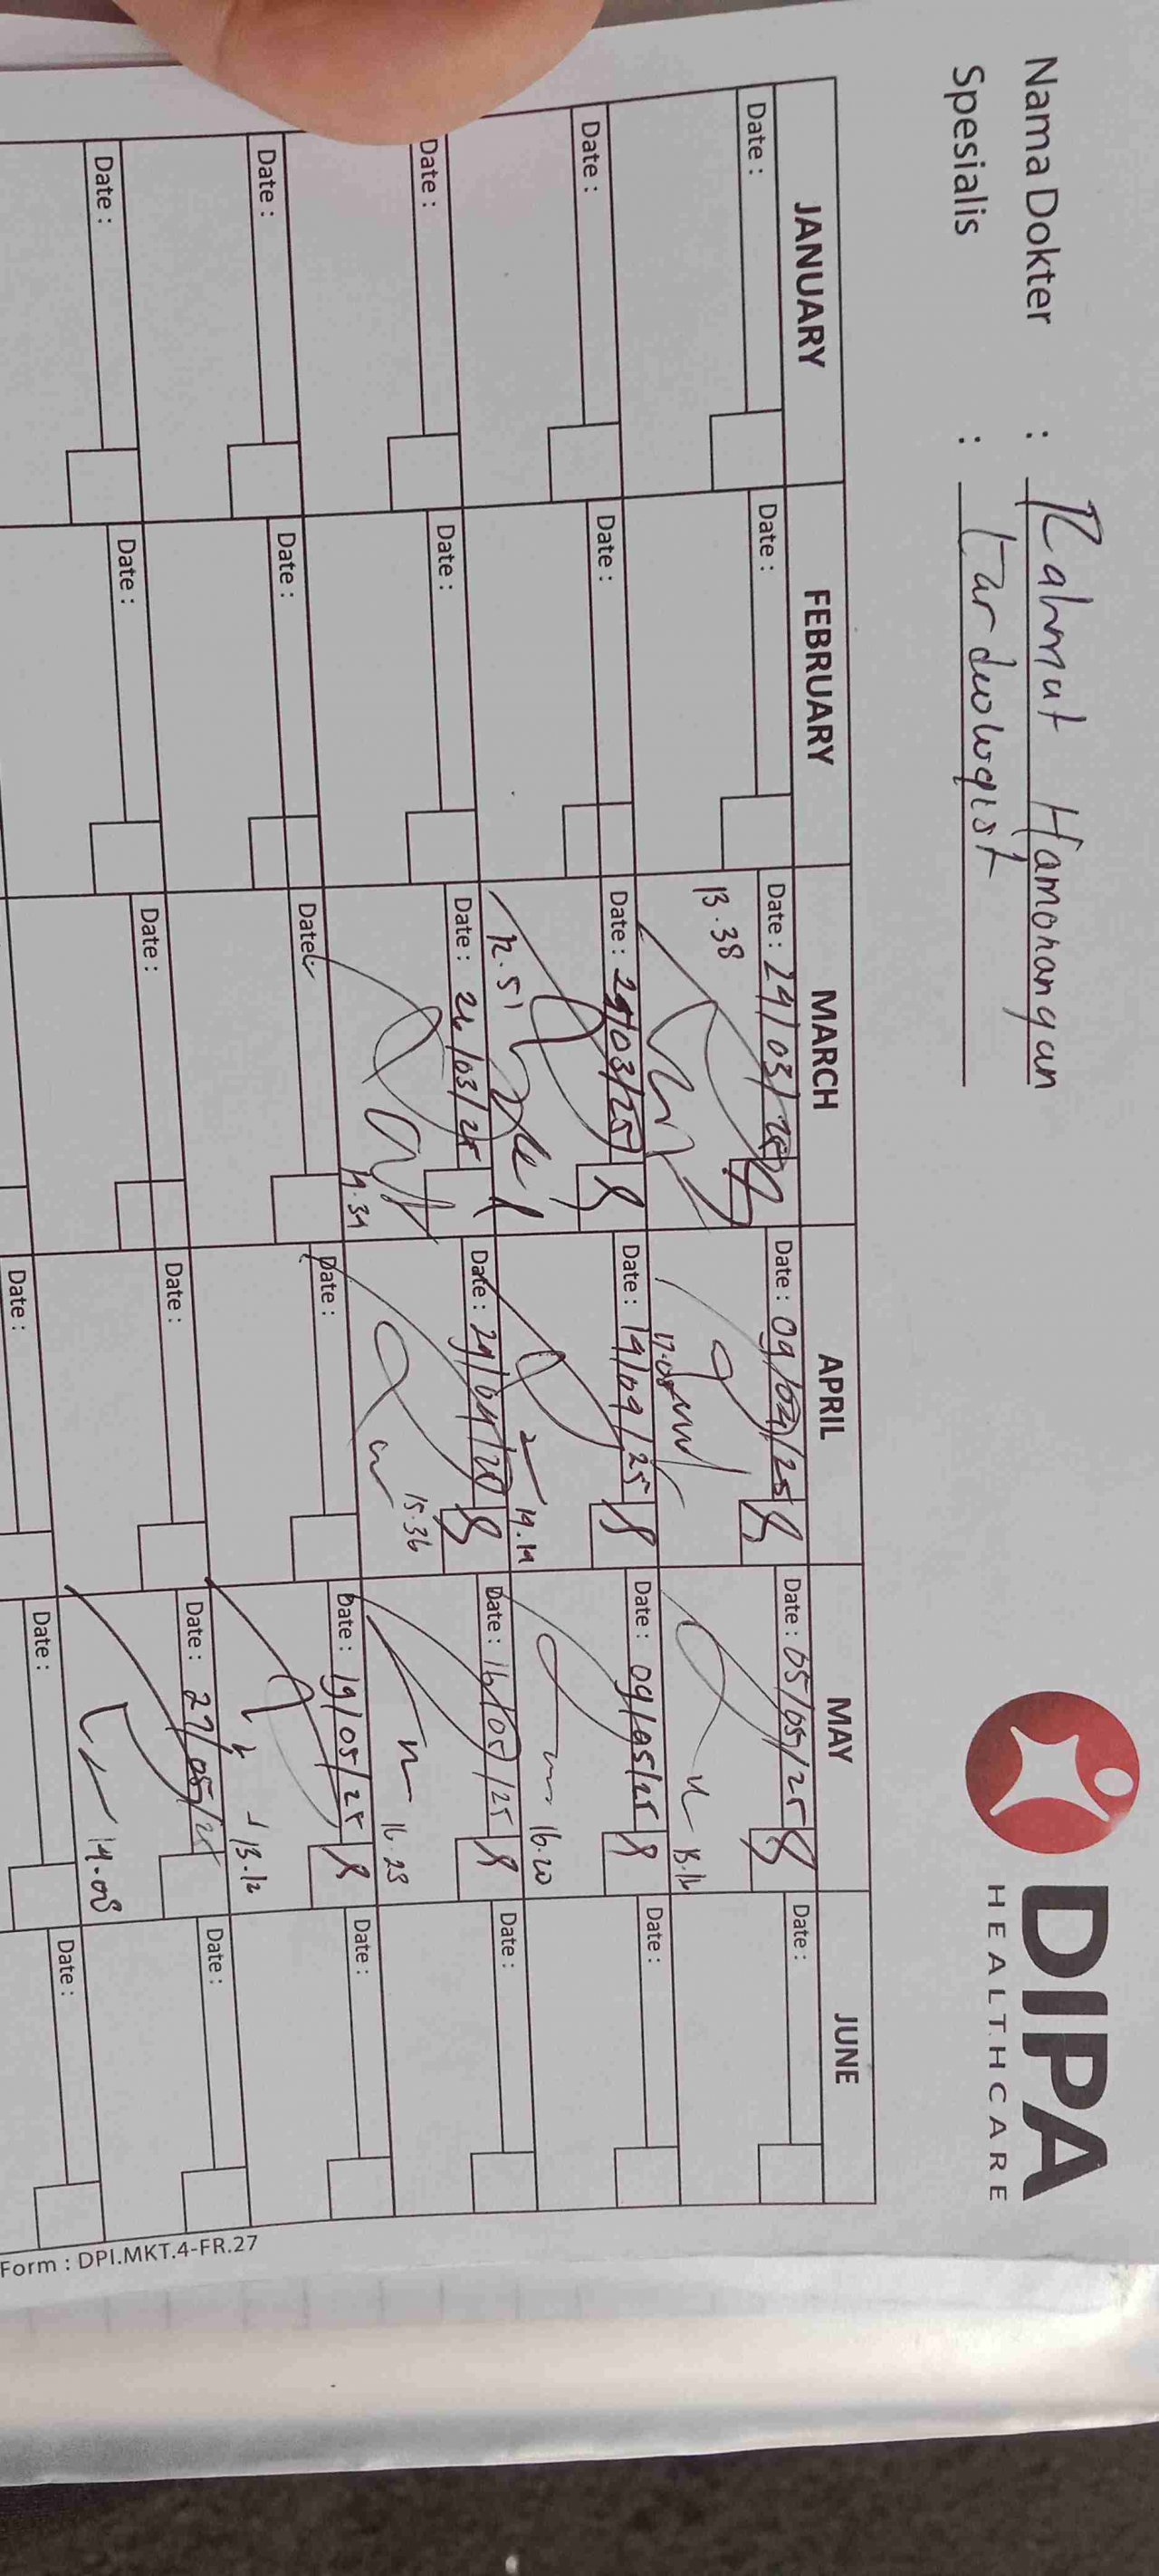 Nama Dokter : Rahmat Hamonangan
Spesialis : Kardiologist
DIPA
HEALTHCARE
JANUARY FEBRUARY MARCH APRIL MAY JUNE
Date : Date : Date : 24/03/25 Date : 09/04/25 Date : 05/05/25 Date :
13.38 17.08 13.16
Date : Date : Date : 25/03/25 Date : 14/04/25 Date : 09/05/25 Date :
12.51 14.14 16.20
Date : Date : Date : 26/03/25 Date : 24/04/25 Date : 16/05/25 Date :
14.34 15.36 16.23
Date : Date : Date : Date : Date : 19/05/25 Date :
13.12
Date : Date : Date : Date : Date : 27/05/25 Date :
14.08
Date : Date : Date :
Form : DPI.MKT.4-FR.27